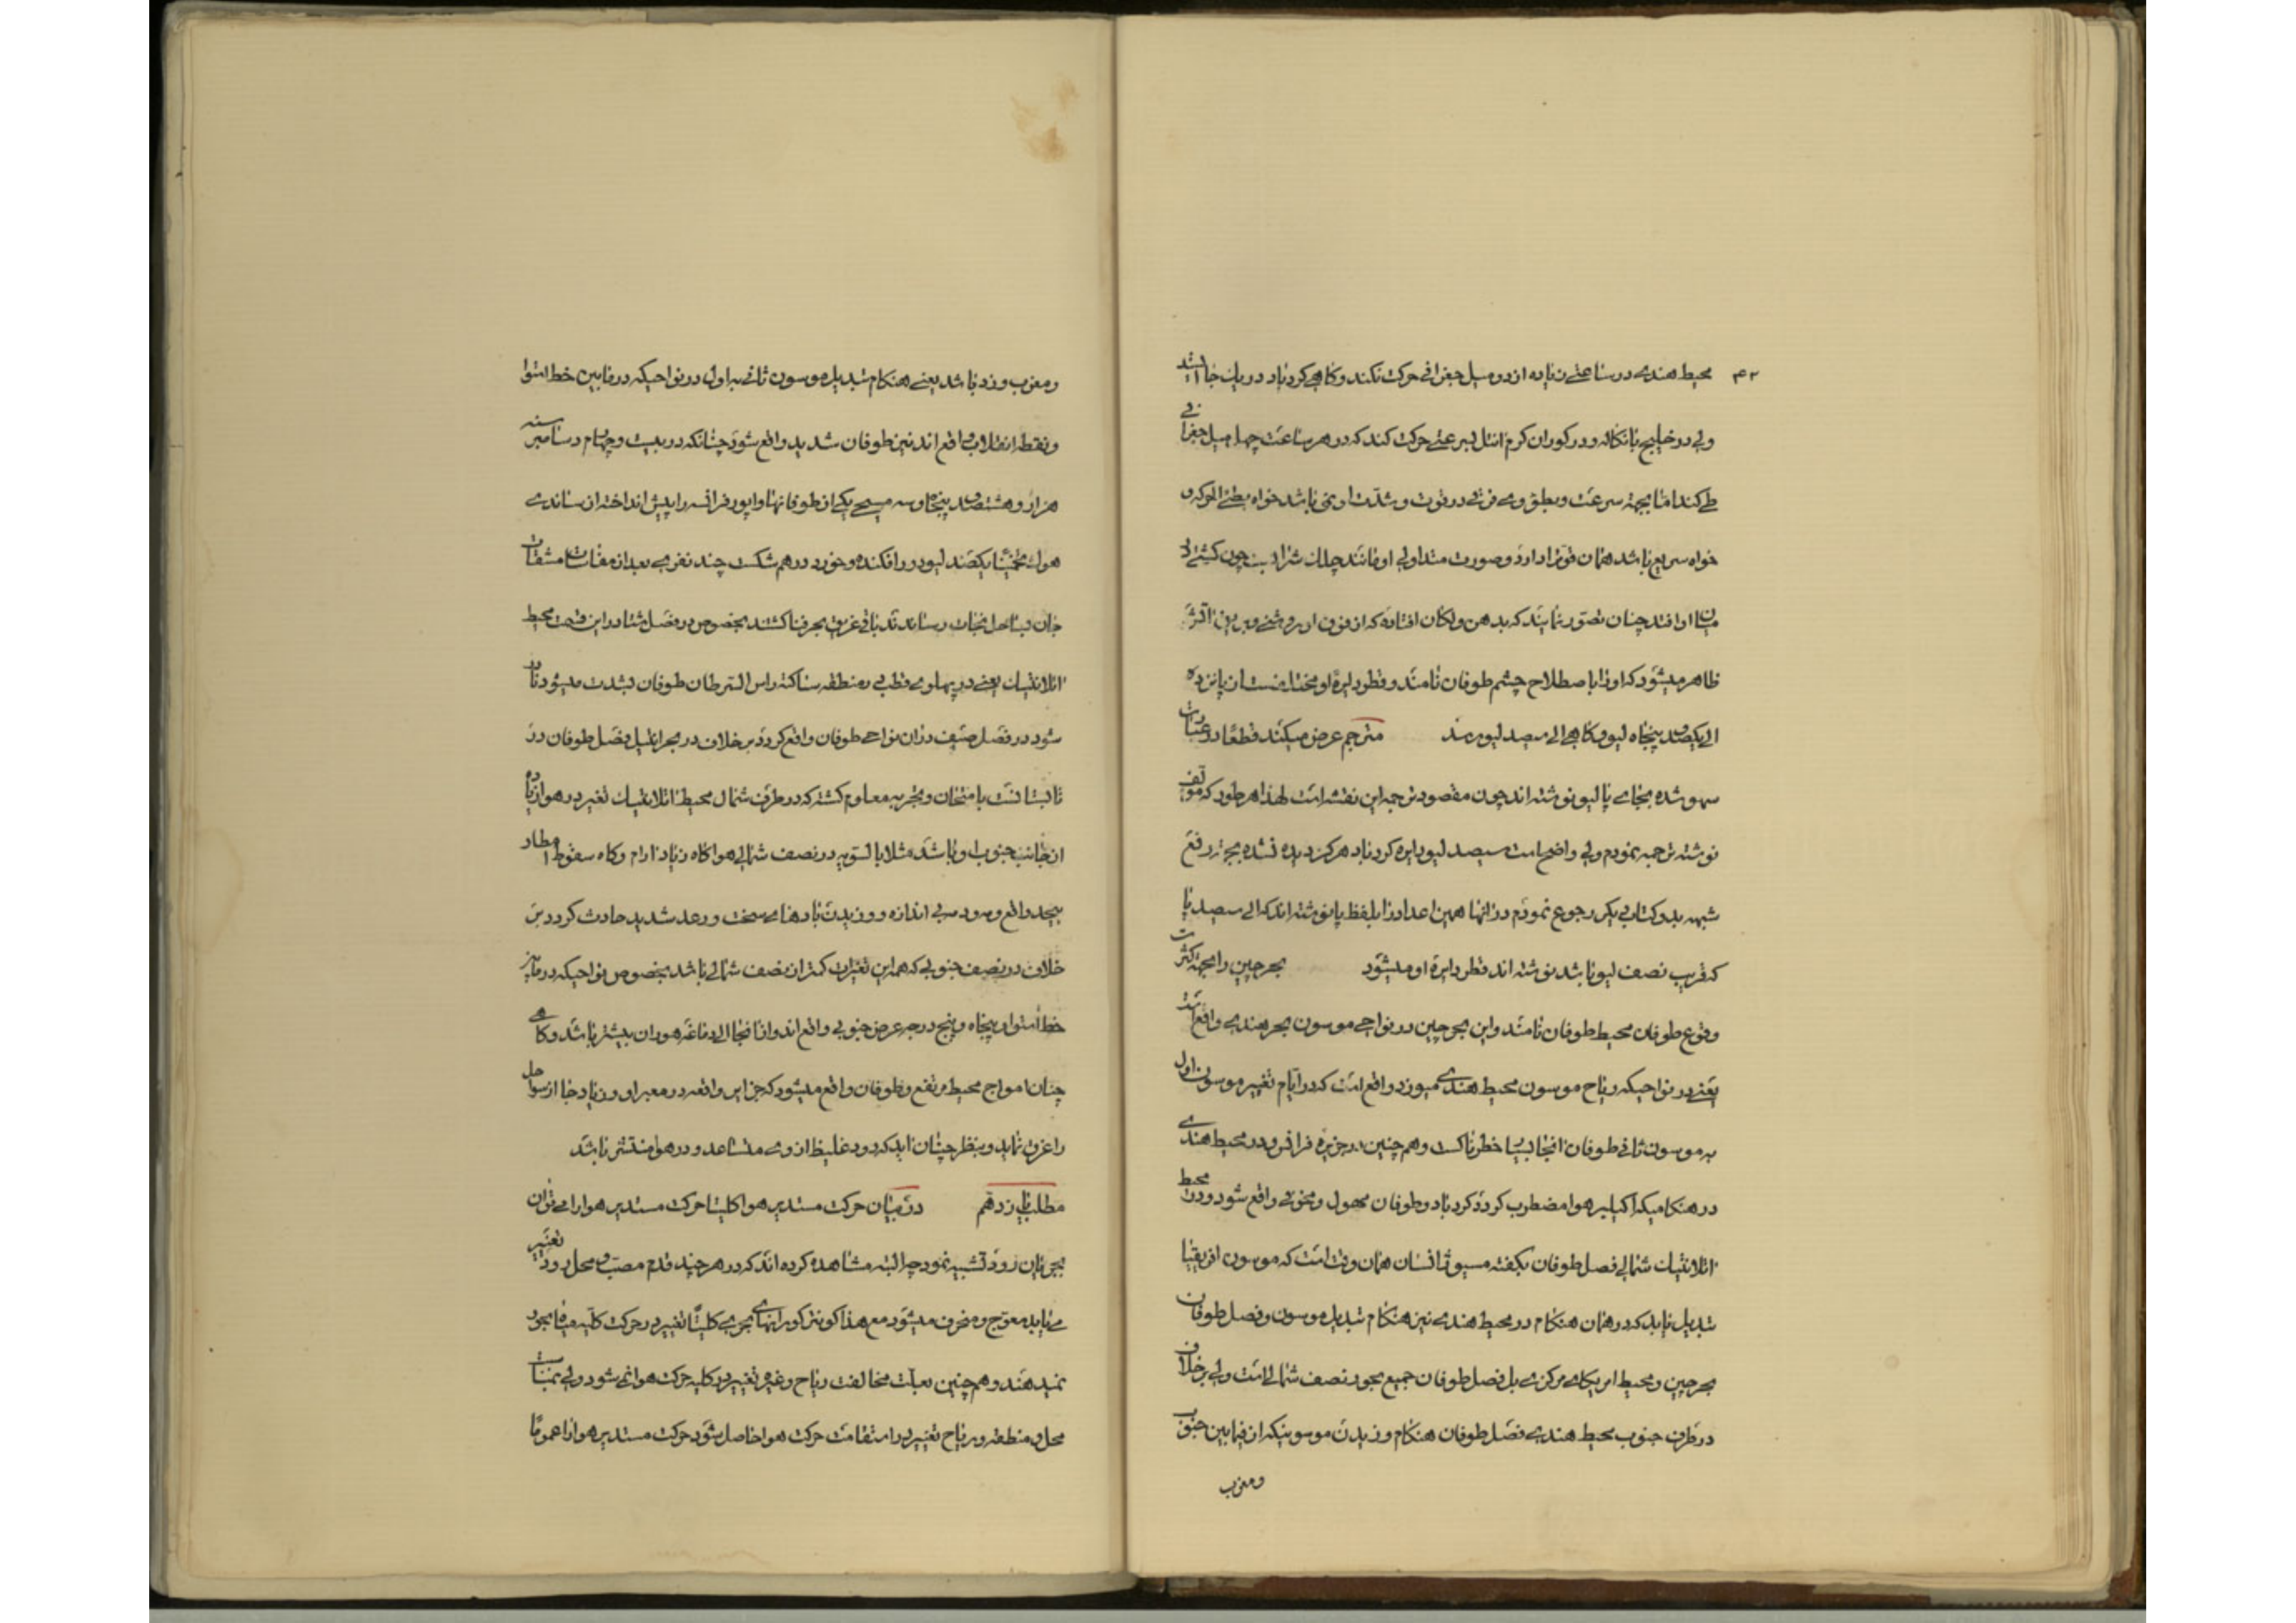 ۴۲
محیط هندی در ساعتی زیاده از دو میل جغرافی حرکت نکند و گاهی گردباد در یک جا ایستد
ولی در خلیج بانکاله و در کوران کرم انتل بسرعتی حرکت کند که در هر ساعت چهل میل جغرافی
طی کند اما بجهة سرعت و بطؤ وی فرقی در قوت و شدت او نمی باشد خواه بطئی الحرکه و
خواه سریع باشد همان قوّترا دارد و صورت متداولی او مانند چلک شراب است چون کشتی در
میان او افتد چنان تصور نمایند که بدهن ولکان افتاده که از فوق او روشنی
ظاهر میشود که او را باصطلاح چشم طوفان نامند و قطر دایرهٔ او مختلفست از پانزده
الی یکصد و پنجاه لیو و گاهی الی سیصد لیو رسد مترجم عرض میکند قطعاً در عبارت
سهو شده بجای پا لیو نوشته اند چون مقصود ترجمه این نقشه است لهذا هر طور که مؤلف
نوشته ترجمه نمودم ولی واضح است سیصد لیو دایره گردباد هرگز دیده نشده بجهة رفع
شبهه بدو کتاب دیگر رجوع نمودم در آنها همین اعداد را بلفظ پا نوشته اند که الی سیصد پا
که قریب نصف لیو باشد نوشته اند قطر دایرهٔ او میشود بحر چین را بجهة کثرت
وقوع طوفان محیط طوفان نامند و این بحر چین در نواحی موسون بحر هندی واقع اند
یعنی در نواحیکه ریاح موسون محیط هندی میوزد واقع است که در ایام تغییر موسون اول
به موسون ثانی طوفان آنجا بسیار خطرناکست و هم چنین در جزیرهٔ فرانس و در محیط هندی
در هنگامیکه اکیلیبر هوا مضطرب گردد گردباد و طوفان مهول و مخوفی واقع شود و در محیط
اتلانتیک شمالی فصل طوفان بگفته مسیو قانسان همان وقت است که موسون افریقیا
تبدیل یابد که در همان هنگام در محیط هندی نیز هنگام تبدیل موسون و فصل طوفان
بحر چین و محیط امریکای مرکزی بل فصل طوفان جمیع بحور نصف شمالی است ولی بر خلاف
در طرف جنوب محیط هندی فصل طوفان هنگام وزیدن موسونیکه از فیما بین جنوب
و مغرب
و مغرب وزد باشد یعنی هنگام تبدیل موسون ثانی به اول در نواحیکه در مابین خط استوا
و نقطه انقلاب واقع اند نیز طوفان شدید واقع شود چنانکه در بیست و چهارم دسامبر سنه
هزار و هشتصد پنجاه و سه مسیحی یکی از طوفانها واپور فرانسه را پیش انداخته از ساندی
هوک تخمیناً یکصد لیو دور افکنده و خورد در هم شکست چند نفری بعد از مقاسات مشقات
جان بساحل نجات رسانیدند باقی غریق بحر فنا گشتند بخصوص در فصل شتا در این قسمت محیط
اتلانتیک یعنی در پهلوی قطبی منطقه ساکنه راس السرطان طوفان بشدت میشود نادر
شود در فصل صیف در آن نواحی طوفان واقع گردد بر خلاف در بحر انتیل فصل طوفان در
تابستانست بامتحان و تجربه معلوم گشته که در طرف شمال محیط اتلانتیک تغییر در هوا زیاده
از جانب جنوب او باشد مثلا بالسویه در نصف شمالی هوا گاه زیاد آرام و گاه سقوط امطار
بیحد واقع و سرد بی اندازه و وزیدن بادهای سخت و رعد شدید حادث گردد بر
خلاف در نصف جنوبی که همه این تغییرات کمتر از نصف شمالی باشد بخصوص نواحیکه در مابین
خط استوا و پنجاه و پنج درجه عرض جنوبی واقع اند و از آنجا الی دماغه هوران بیشتر باشد و گاهی
چنان امواج محیط مرتفع و طوفان واقع میشود که جزایر واقعه در معبر او و زیاد جا از سواحل
را غرق نماید و بنظر چنان آید که دود غلیظ از وی متصاعد و در هوا منتشر باشد
مطلب یازدهم در بیان حرکت مستدیر هوا کلیتا حرکت مستدیر هوا را می توان
بجریان رود تشبیه نمود چه البته مشاهده کرده اند که در هر چند قدم مصب و محل رود تغییر
می یابد معوج و منحرف میشود مع هذا کونتر کورانهای بحری کلیتاً تغییر در حرکت کلیه میاه بحور
نمیدهند و هم چنین بعلت مخالفت ریاح وغیره تغییر در کلیه حرکت هوا نمی شود ولی بمناسبت
محل و منطقه و ریاح تغییر در استقامت حرکت هوا حاصل شود حرکت مستدیر هوا را عموماً